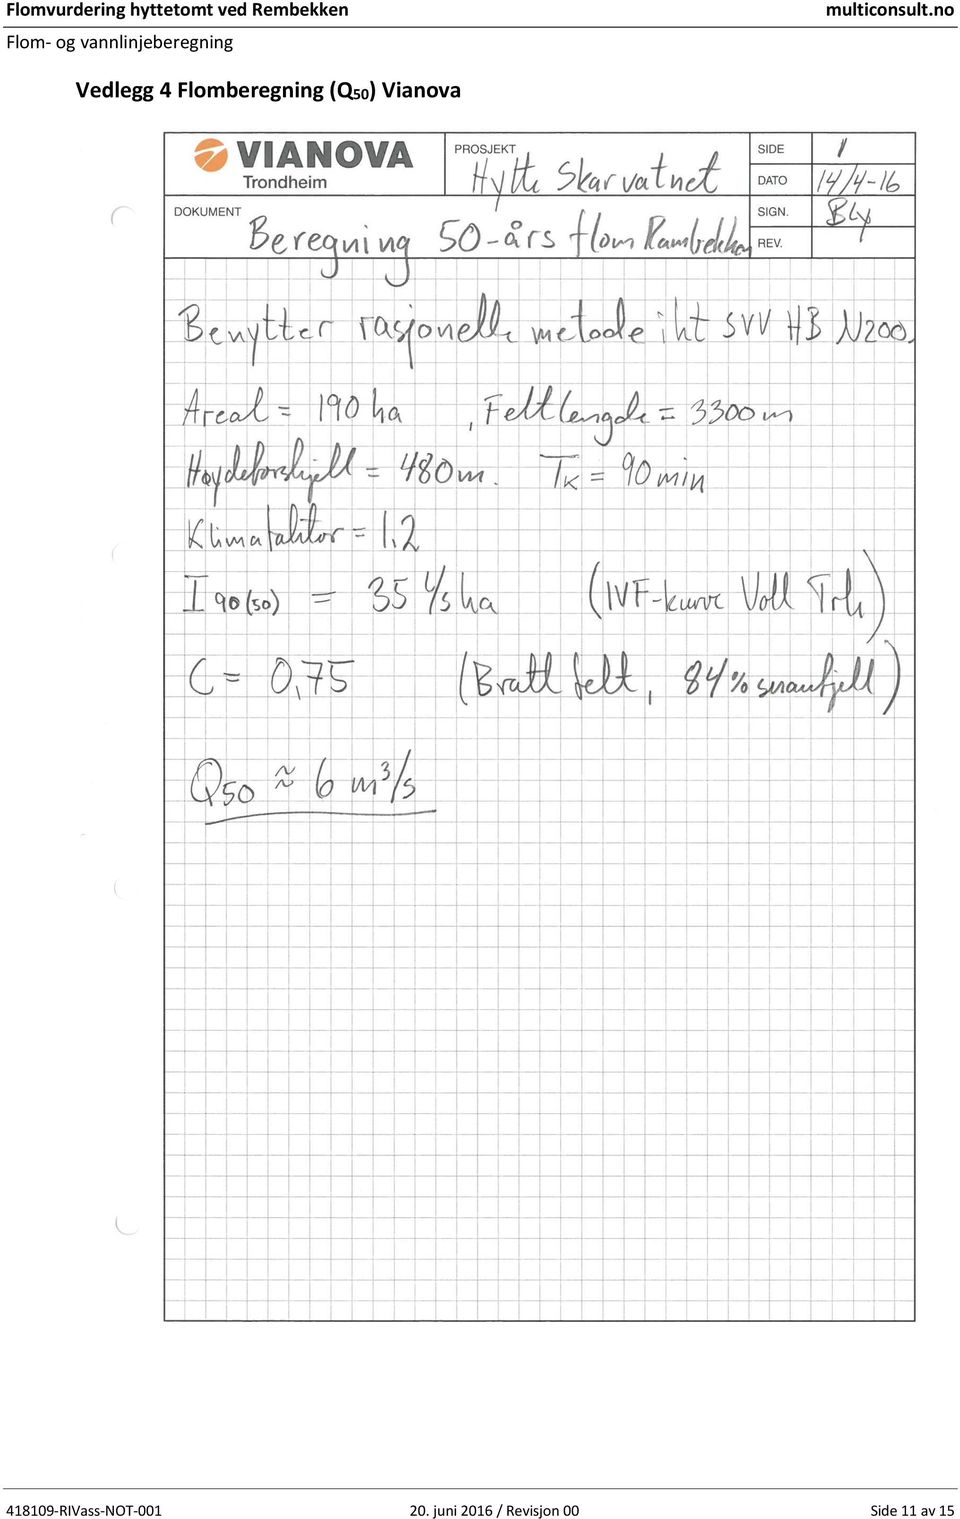 Flomvurdering hyttetomt ved Rembekken multiconsult.no
Flom- og vannlinjeberegning
Vedlegg 4 Flomberegning (Q50) Vianova
VIANOVA
Trondheim
PROSJEKT
Hytte Skarvatnet
SIDE 1
DATO 14/4-16
DOKUMENT
Beregning 50-års flom Rambekken
SIGN. BLy
REV.
Benytter rasjonelle metode iht SVV HB N200.
Areal = 190 ha , Feltlengde = 3300 m
Høydeforskjell = 480 m. TK = 90 min
Klimafaktor = 1.2
I 90(50) = 35 l/s ha (IVF-kurve Voll Trh)
C = 0,75 (Bratt felt, 84% snaufjell)
Q50 ≈ 6 m³/s
418109-RIVass-NOT-001 20. juni 2016 / Revisjon 00 Side 11 av 15